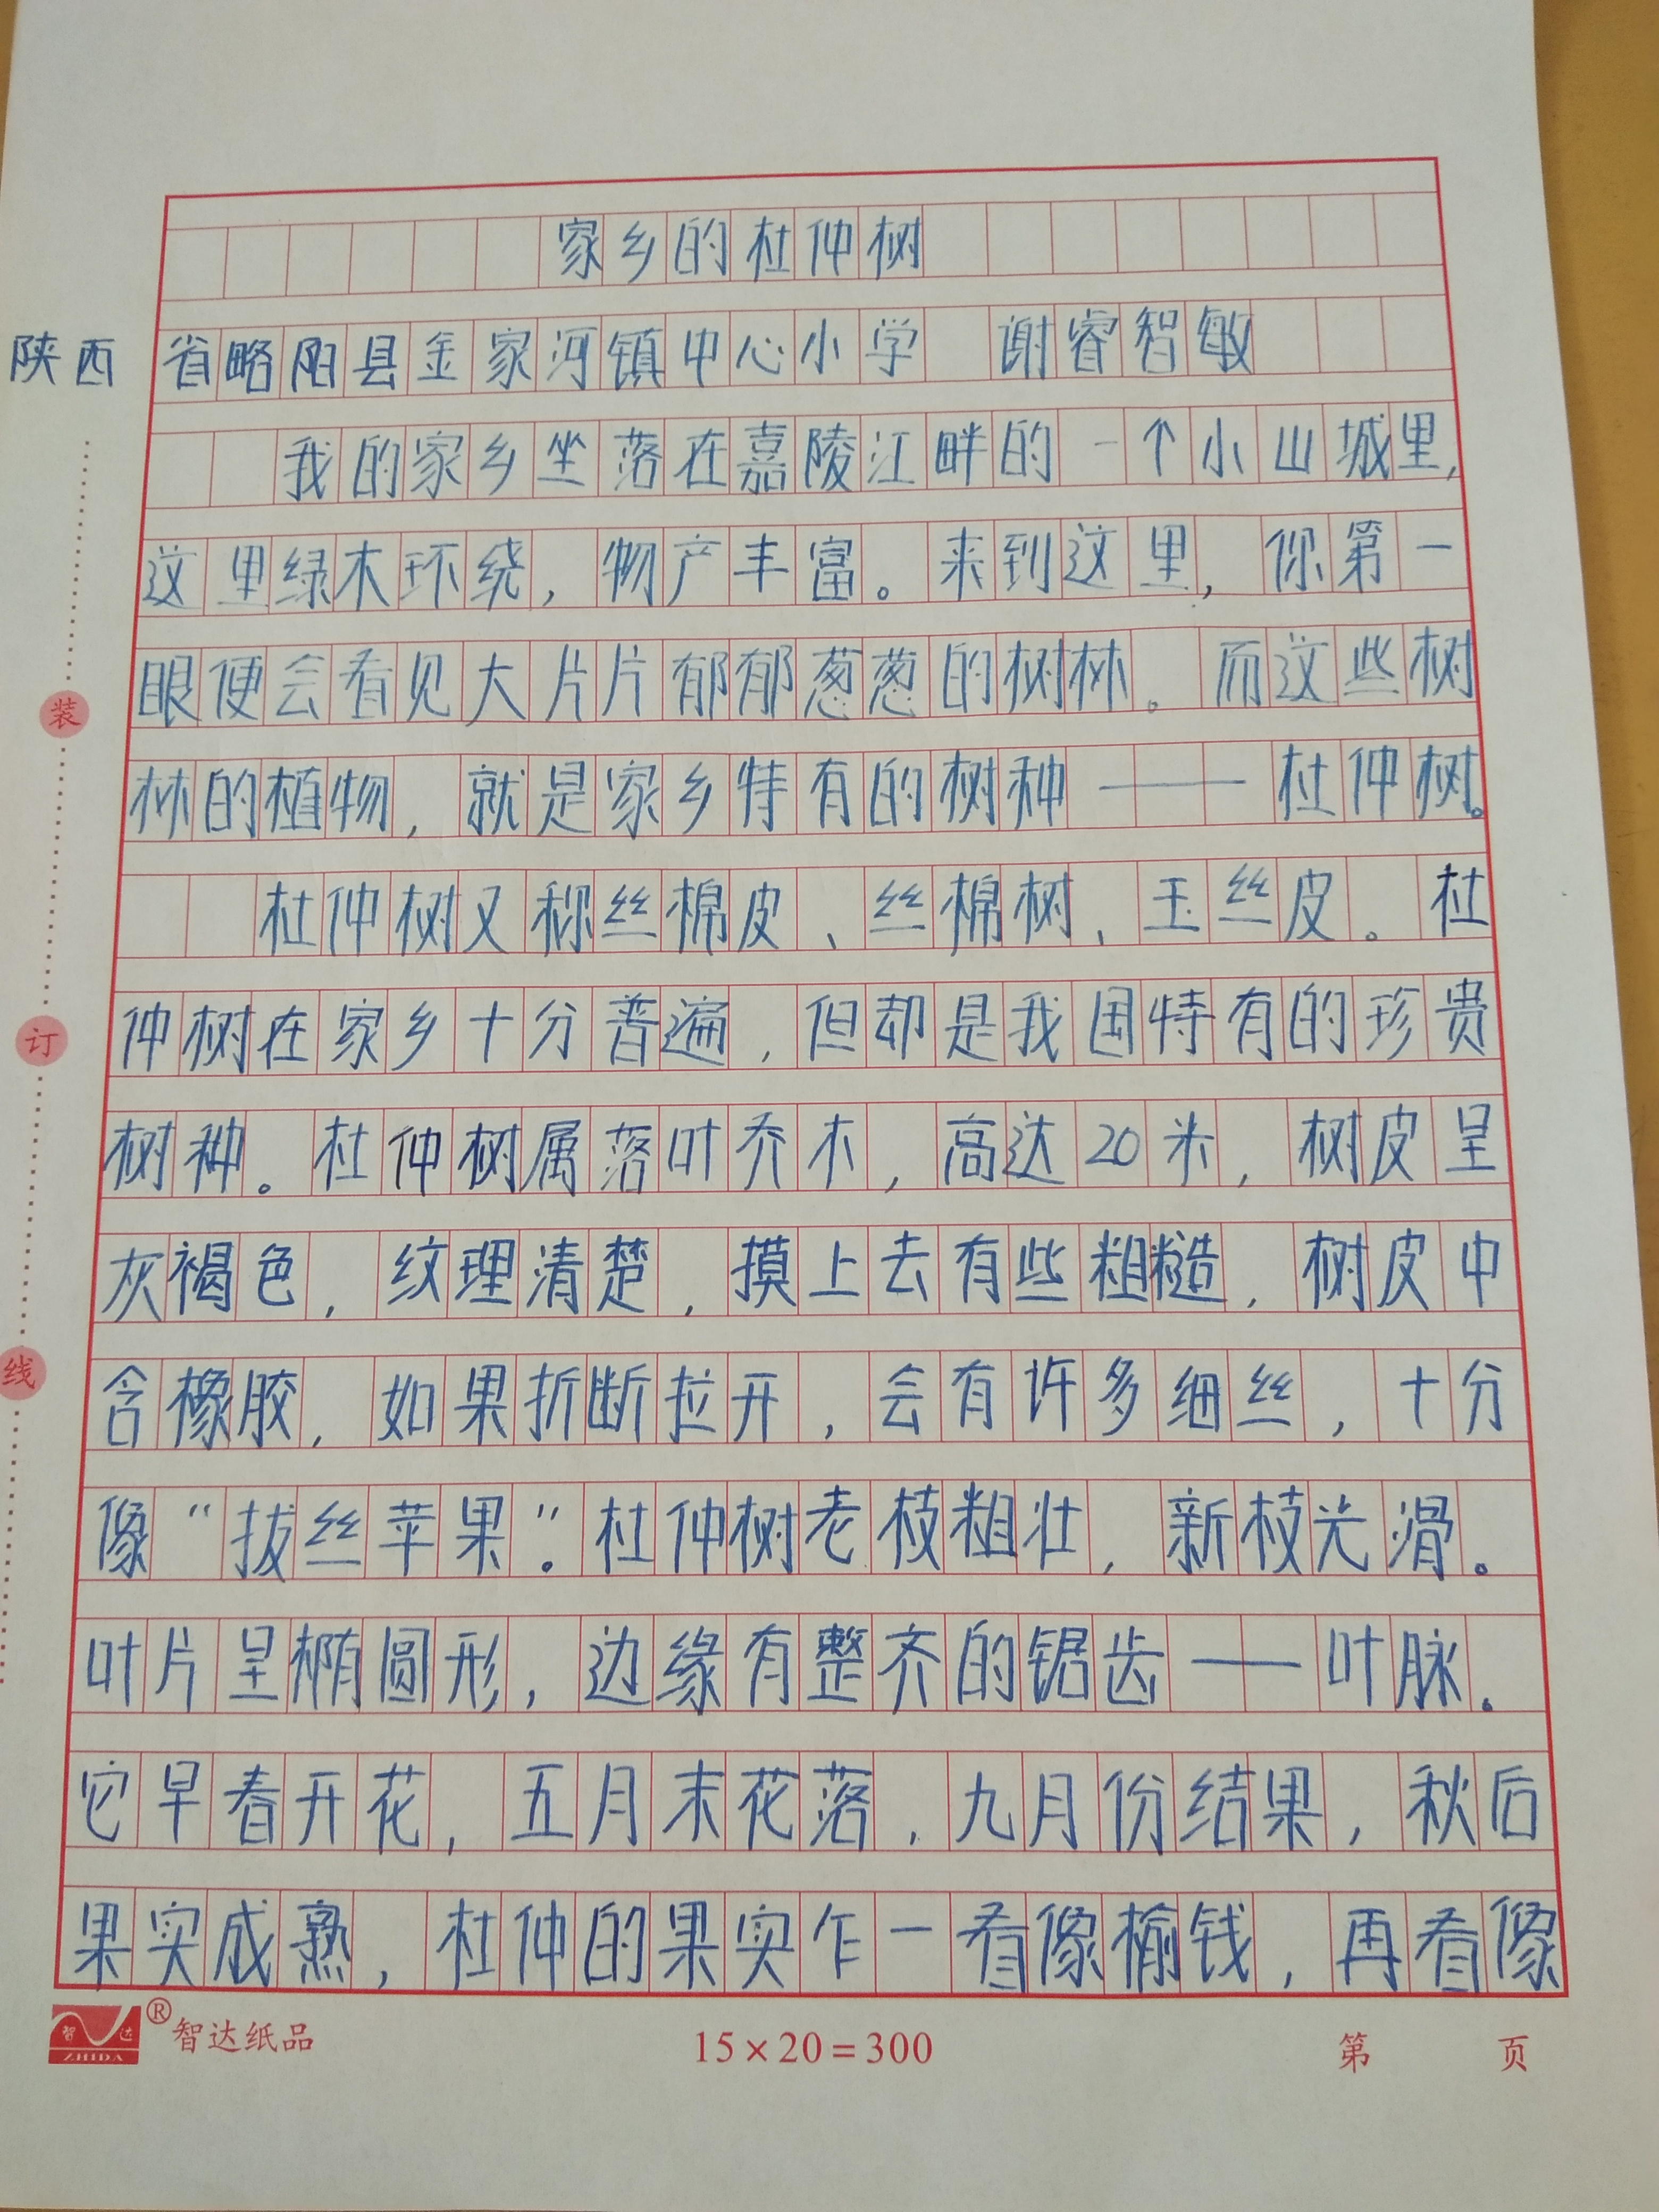 家乡的杜仲树
陕西省略阳县金家河镇中心小学 谢睿智敏
我的家乡坐落在嘉陵江畔的一个小山城里,
这里绿木环绕,物产丰富。来到这里,你第一
眼便会看见大片片郁郁葱葱的树林。而这些树
林的植物,就是家乡特有的树种——杜仲树。
杜仲树又称丝棉皮、丝棉树、玉丝皮。杜
仲树在家乡十分普遍,但却是我国特有的珍贵
树种。杜仲树属落叶乔木,高达20米,树皮呈
灰褐色,纹理清楚,摸上去有些粗糙,树皮中
含橡胶,如果折断拉开,会有许多细丝,十分
像“拔丝苹果”。杜仲树老枝粗壮,新枝光滑。
叶片呈椭圆形,边缘有整齐的锯齿——叶脉。
它早春开花,五月末花落,九月份结果,秋后
果实成熟,杜仲的果实乍一看像榆钱,再看像
装
订
线
智达
ZHIDA
® 智达纸品
15×20=300
第 页